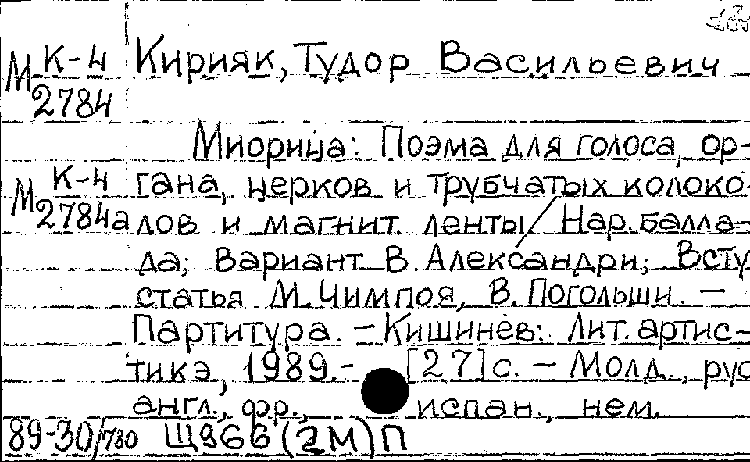 М К-4 Кирияк, Тудор Васильевич
2784
Миорица: Поэма для голоса, ор-
М К-4 гана, церков и трубчатых колоко-
2784а лов и магнит. ленты / Нар. балла-
да; Вариант В. Александри; Всту
статья М. Чимпоя, В. Погольши. —
Партитура. — Кишинев: Лит. артис-
тикэ, 1989. - [27] с. — Молд., рус
англ., фр., испан., нем.
89-30/780 Щ966(2М)П